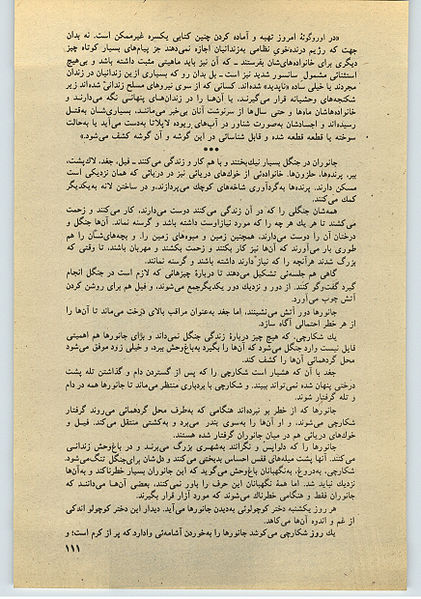 «در اوروگوئهٔ امروز تهیه و آماده کردن چنین کتابی یکسره غیرممکن است. نه بدان
جهت که رژیم درنده‌خوی نظامی به‌زندانیان اجازه نمی‌دهند جز پیام‌های بسیار کوتاه چیز
دیگری برای خانواده‌های‌شان بفرستند ــ که آن نیز باید ماهیتی مثبت داشته باشد و بی‌هیچ
استثنائی مشمول سانسور شدید نیز است ــ بل بدان رو که بسیاری ازین زندانیان در زندان
مجردند یا خیلی ساده «ناپدید» شده‌اند. کسانی که از سوی نیروهای مسلح زندانی شده‌اند زیر
شکنجه‌های وحشیانه قرار می‌گیرند، یا آن‌ها را در زندان‌های پنهانی نگه می‌دارند و
خانواده‌هاشان ماه‌ها و حتی سال‌ها از سرنوشت آنان بی‌خبر می‌مانند، بسیاری‌شان به‌قتل
رسیده‌اند و اجسادشان به‌صورت شناور در آب‌های ریوده لاپلاتا به‌دست می‌آید یا به‌حالت
سوخته یا قطعه قطعه شده و قابل شناسائی در این گوشه و آن گوشه کشف می‌شود.»
***
جانوران در جنگل بسیار نیك‌بختند و با هم کار و زندگی می‌کنند ــ فیل، جغد، لاك‌پشت،
ببر، پرنده‌ها، حلزون‌ها. خانواده‌ئی از خوك‌های دریائی نیز در دریائی که همان نزدیکی است
مسکن دارند. پرنده‌ها به‌گردآوری شاخه‌های کوچك می‌پردازند، و در ساختن لانه به‌یکدیگر
کمك می‌کنند.
همه‌شان جنگلی را که در آن زندگی می‌کنند دوست می‌دارند، کار می‌کنند و زحمت
می‌کشند تا هر یك هر چه را که مورد نیازاوست داشته باشد و گرسنه نماند. آن‌ها جنگل و
درختان آن را دوست می‌دارند، همچنین زمین و میوه‌های زمین را. و بچه‌های‌شان را هم
طوری بار می‌آورند که آن‌ها نیز کار بکنند و زحمت بکشند و مهربان باشند، تا وقتی که
بزرگ شدند هرآنچه را که نیاز دارند داشته باشند و گرسنه نمانند.
گاهی هم جلسه‌ئی تشکیل می‌دهند تا دربارهٔ چیزهائی که لازم است در جنگل انجام
گیرد گفت‌وگو کنند. از دور و نزدیك دور یکدیگرجمع می‌شوند، و فیل هم برای روشن کردن
آتش چوب می‌آورد.
جانورها دور آتش می‌نشینند، اما جغد به‌عنوان مراقب بالای درخت می‌ماند تا آن‌ها را
از هر خطر احتمالی آگاه سازد.
یك شکارچی، که هیچ چیز دربارهٔ زندگی جنگل نمی‌داند و برای جانورها هم اهمیتی
قایل نیست وارد جنگل می‌شود که آن‌ها را بگیرد به‌باغ‌وحش ببرد، و خیلی زود موفق می‌شود
محل گردهمائی آن‌ها را کشف کند.
جغد با آن که هشیار است شکارچی را که پس از گستردن دام و گذاشتن تله پشت
درختی پنهان شده نمی‌تواند ببیند. و شکارچی با بردباری منتظر می‌ماند تا جانورها همه در دام
و تله گرفتار شوند.
جانورها که از خطر بو نبرده‌اند هنگامی که به‌طرف محل گردهمائی می‌روند گرفتار
شکارچی می‌شوند، و او آن‌ها را به‌سوی بندر می‌برد و به‌کشتی منتقل می‌کند. فیل و
خوك‌های دریائی هم در میان جانوران گرفتار شده هستند.
جانورها را که دلواپس و نگرانند به‌شهری بزرگ می‌برند و در باغ‌وحش زندانی
می‌کنند. آنها پشت میله‌های قفس احساس بدبختی می‌کنند و دلشان برای‌جنگل تنگ‌می‌شود
شکارچی، به‌دروغ، به‌نگهبانان باغ‌وحش می‌گوید که این جانوران بسیار خطرناکند و به‌آن‌ها
نزدیك نباید شد. اما همهٔ نگهبانان این حرف را باور نمی‌کنند، بعضی آن‌ها می‌دانند که
جانوران فقط و هنگامی خطرناك می‌شوند که مورد آزار قرار بگیرند.
هر روز یکشنبه دختر کوچولوئی به‌دیدن جانورها می‌آید. دیدار این دختر کوچولو اندکی
از غم و اندوه آن‌ها می‌کاهد.
یك روز شکارچی می‌کوشد جانورها را به‌خوردن آشامه‌ئی وادارد که پر از کرم است؛ و
۱۱۱